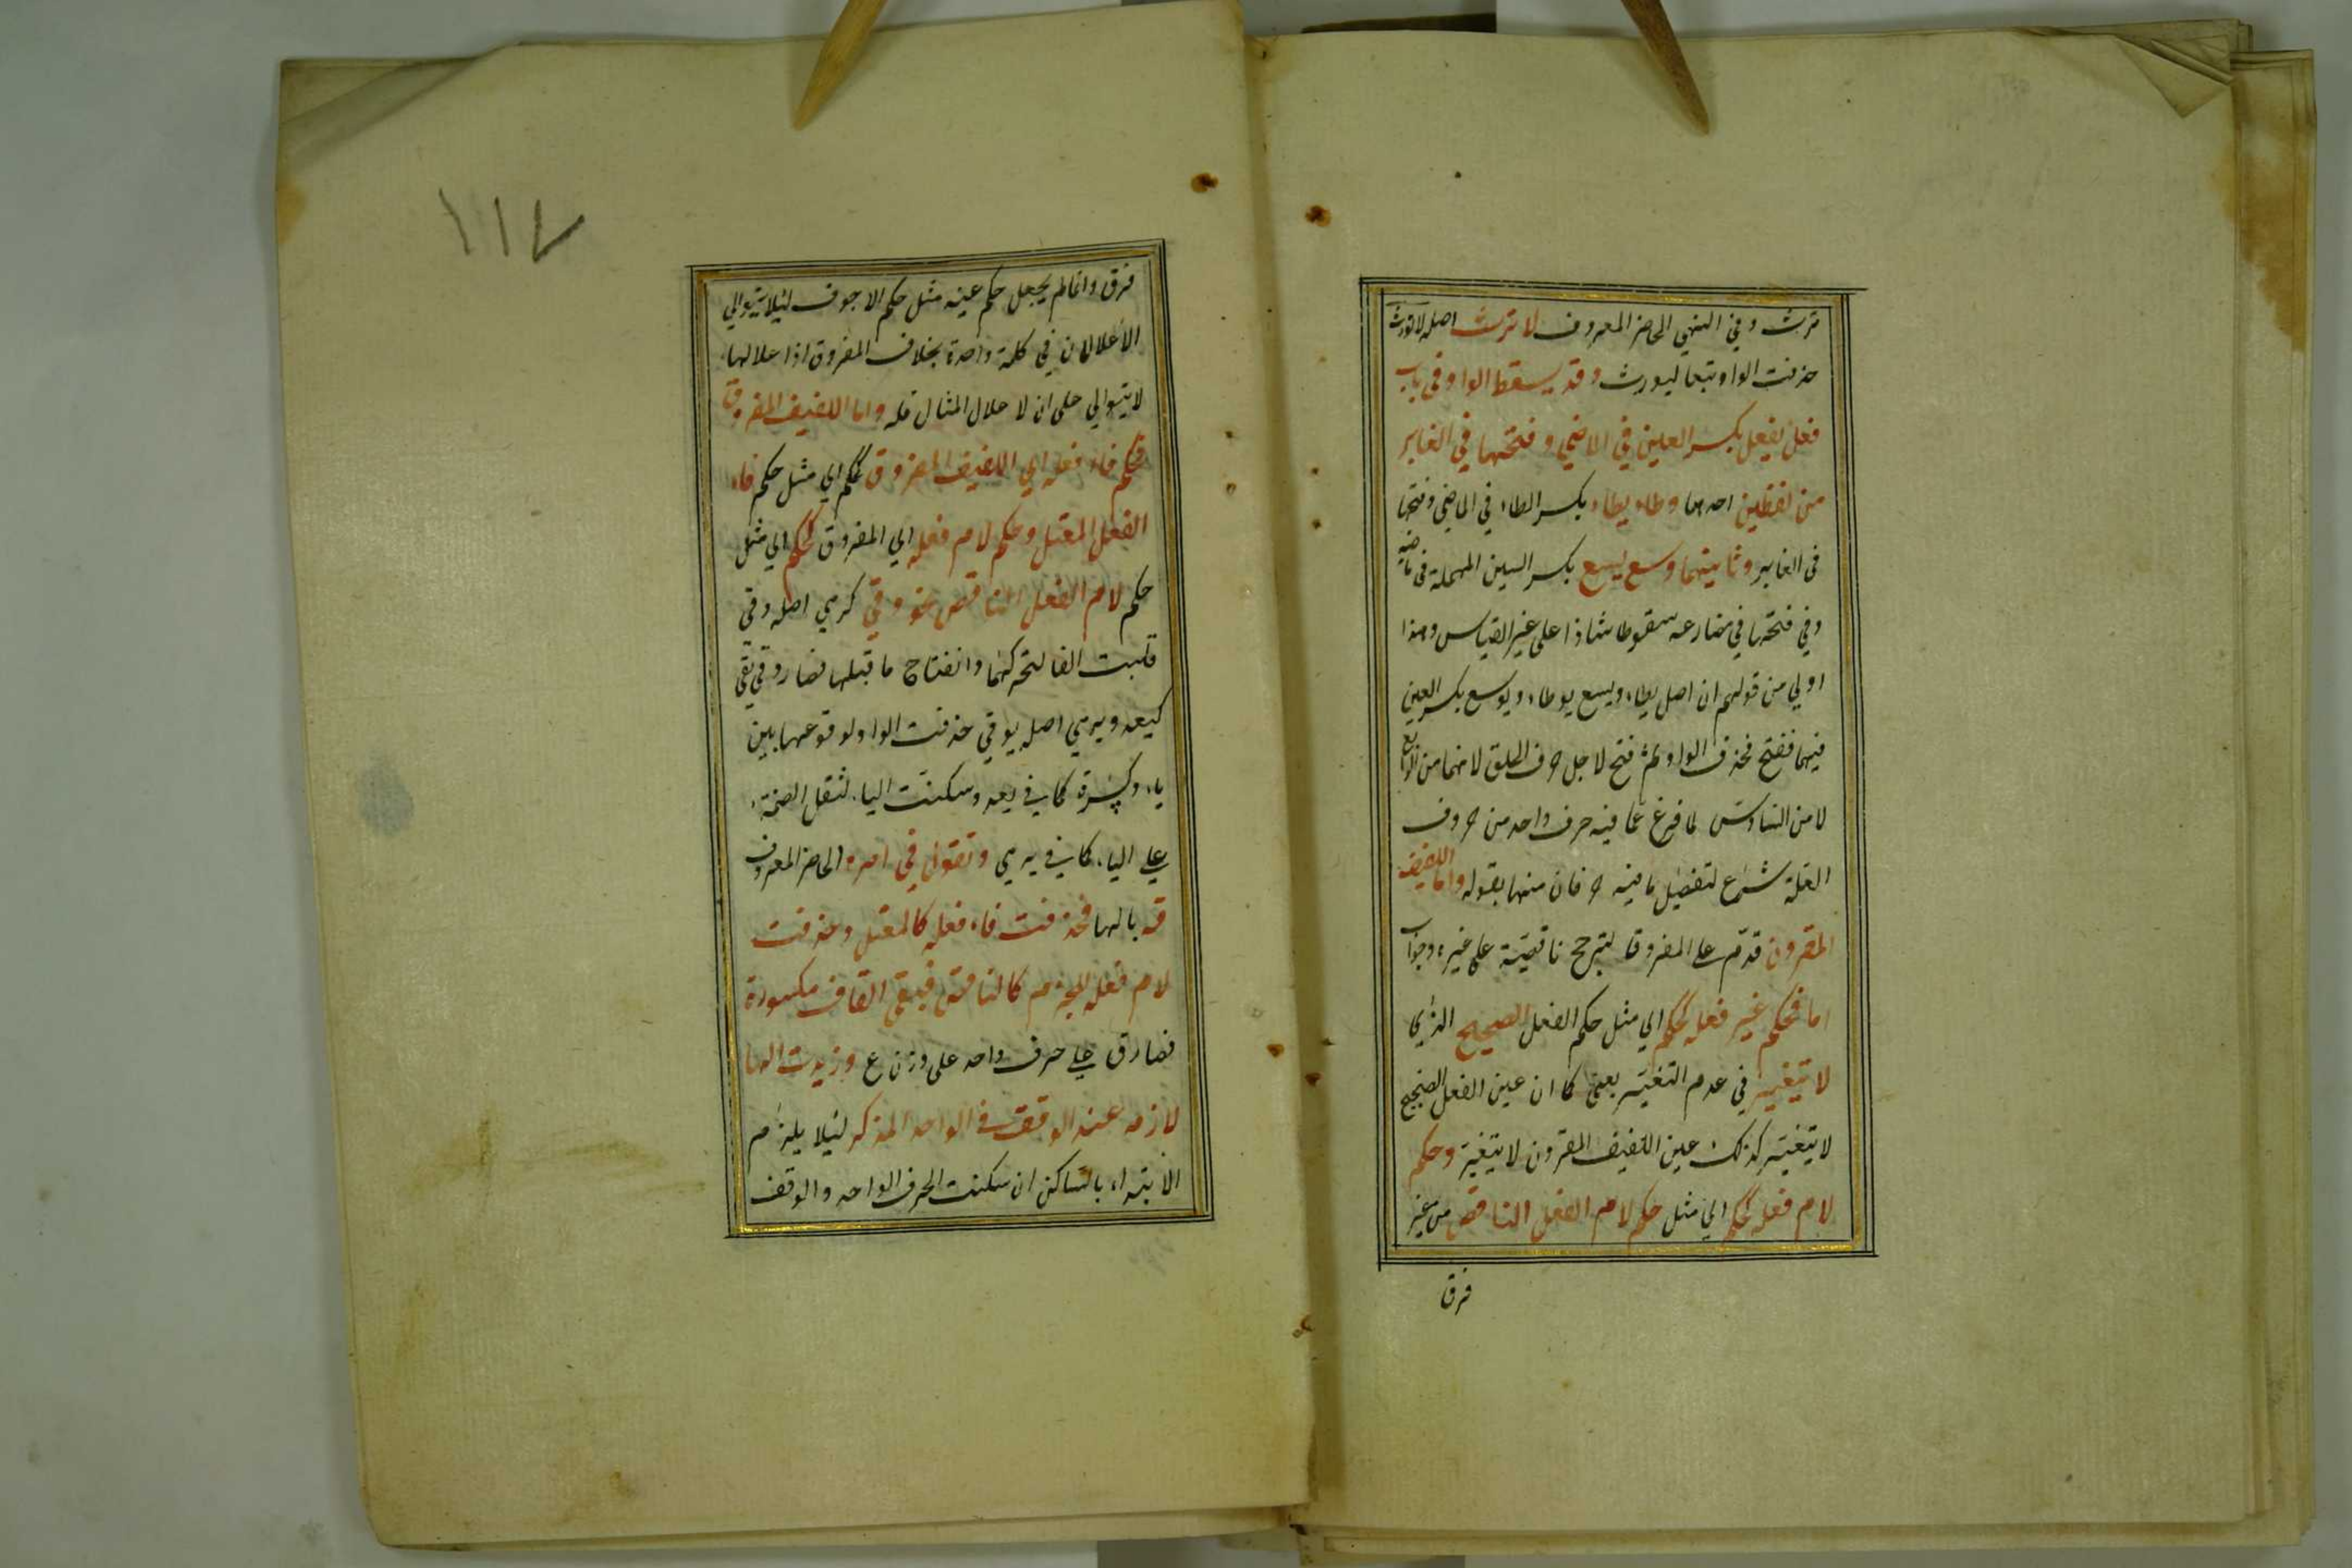 ترث وفي النهي الحاضر المعروف لا ترث اصله لا تورث
حذفت الواو تبعا ليورث وقد يسقط الواو في باب
فعل يفعل بكسر العين في الماضي وفتحها في الغابر
من لفظين احدهما وطاء يطاء بكسر الطاء في الماضي وفتحها
في الغابر وثانيهما وسع يسع بكسر السين المهملة في ماضيه
وفي فتحها في مضارعه سقوطا شاذا على غير القياس وهذا
اولي من قولهم ان اصل يطاء ويسع يوطاء ويوسع بكسر العين
فيهما ففتح فحذف الواو ثم فتح لاجل حرف الحلق لانهما من الرابع
لا من السادس لما فرغ عما فيه حرف واحد من حروف
العلة شرع لتفصيل ما فيه حرفان منها بقوله واما اللفيف
المقرون قدم على المفروق لترجح ناقصية على غيره وجواب
اما فحكم عين فعله كحكم اي مثل حكم الفعل الصحيح الذي
لا يتغير في عدم التغير يعني كما ان عين الفعل الصحيح
لا يتغير كذلك عين اللفيف المقرون لا يتغير وحكم
لام فعله كحكم اي مثل حكم لام الفعل الناقص من غير
فرق
١١٧
فرق وانما لم يجعل حكم عينه مثل حكم الاجوف لئلا يتوالي
الاعلالان في كلمة واحدة بخلاف المفروق اذا علالها
لا يتوالي على ان لا علال المثال قلة واما اللفيف المفروق
فحكم فاء فعله اي اللفيف المفروق كحكم اي مثل حكم فاء
الفعل المعتل وحكم لام فعله اي المفروق كحكم اي مثل
حكم لام الفعل الناقص نحو وقي كرمي اصله وقي
قلبت الفا لتحركها وانفتاح ما قبلها فصار وقي يقي
كيعد ويرمي اصله يوقي حذفت الواو لوقوعها بين
ياء وكسرة كما في يعد وسكنت الياء لثقل الضمة
على الياء كما في يرمي وتقول في امره الحاضر المعروف
قه بالها فحذفت فاء فعله كالمعتل وحذفت
لام فعله للجزم كالناقص فبقي القاف مكسورة
فصار ق على حرف واحد على وزن ع وزيدت الها
لازمه عند الوقف في الواحد المذكر لئلا يلزم
الابتداء بالساكن ان سكنت الحرف الواحد والوقف